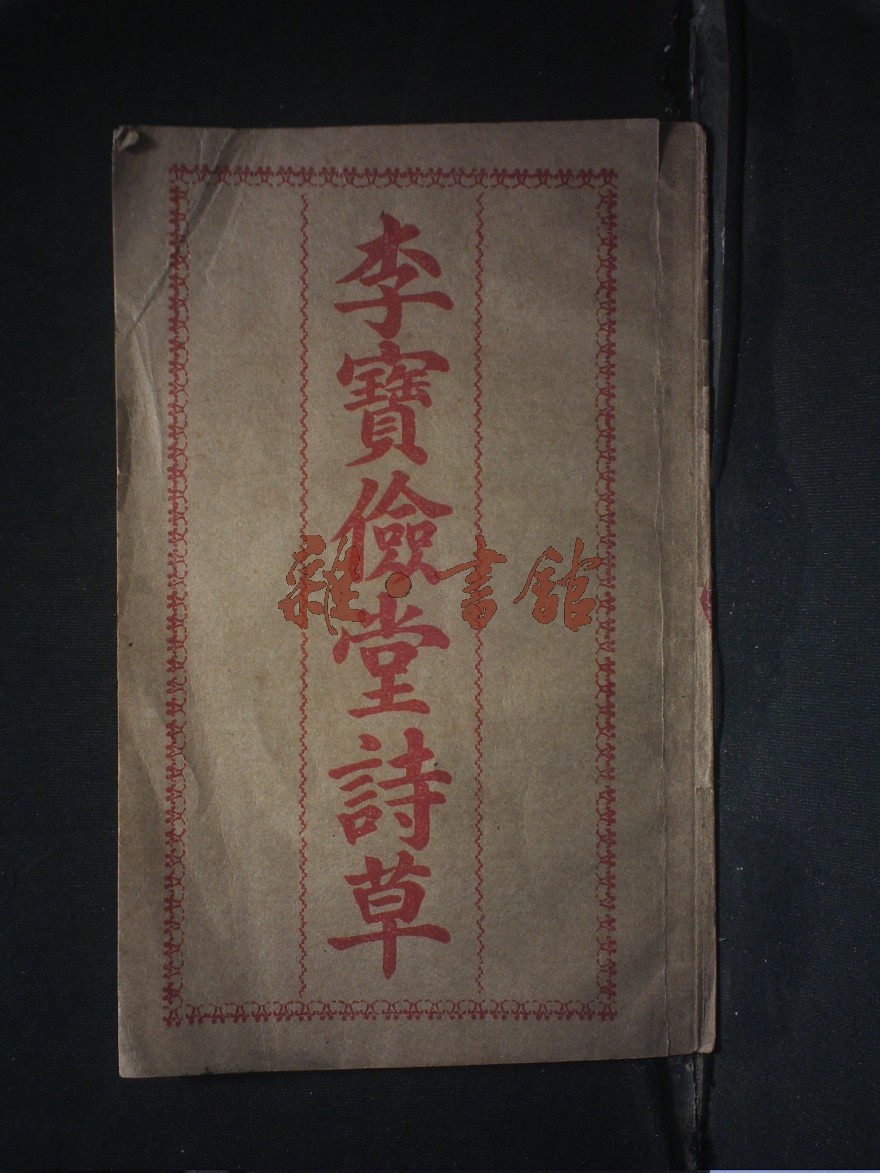 李寶儉堂詩草
雜·書館